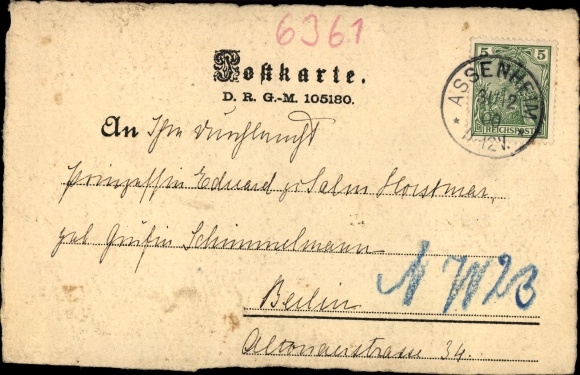 6361
Postkarte.
D. R. G.-M. 105180.
5 5
REICHSPOST
* ASSENHEIM *
An Ihre Durchlaucht
Prinzessin Eduard zu Salm Horstmar,
geb. Gräfin Schimmelmann
Berlin
N W 23
Altonaerstrasse 34.